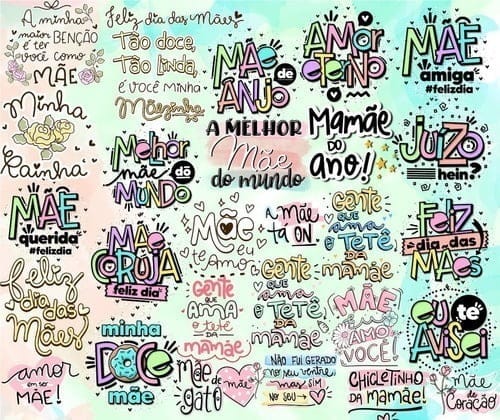 A minha
maior BENÇÃO
é ter
você como
MÃE
Feliz dia das Mães
Tão doce,
Tão linda,
é você minha
Mãezinha
MÃE
de
ANJO
AMOR
eterno
MÃE
amiga
#felizdia
Minha
Rainha
Melhor
mãe do
MUNDO
A MELHOR
Mãe
do mundo
Mamãe
DO
ano!
JUÍZO
hein?
MÃE
querida
#felizdia
MÃE
CORUJA
feliz dia
Mãe
eu te amo
a mãe
tá ON
Gente
QUE
ama
O TETÊ
DA
mamãe
Feliz
dia das
MÃES
Feliz
dia das
Mães
Gente
QUE
AMA
o tetê
da
mamãe
Gente
QUE
ama
O TETÊ
DA
mamãe
MÃE
eu
AMO
VOCÊ!
eu te
AVISEI
amor
em ser
MÃE!
minha
DOCE
mãe
Mãe
de
gato
mãe
NÃO FUI GERADO
no seu ventre
mas SIM
NO seu
CHICLETINHO
DA
mamãe!
Mãe
de
Coração